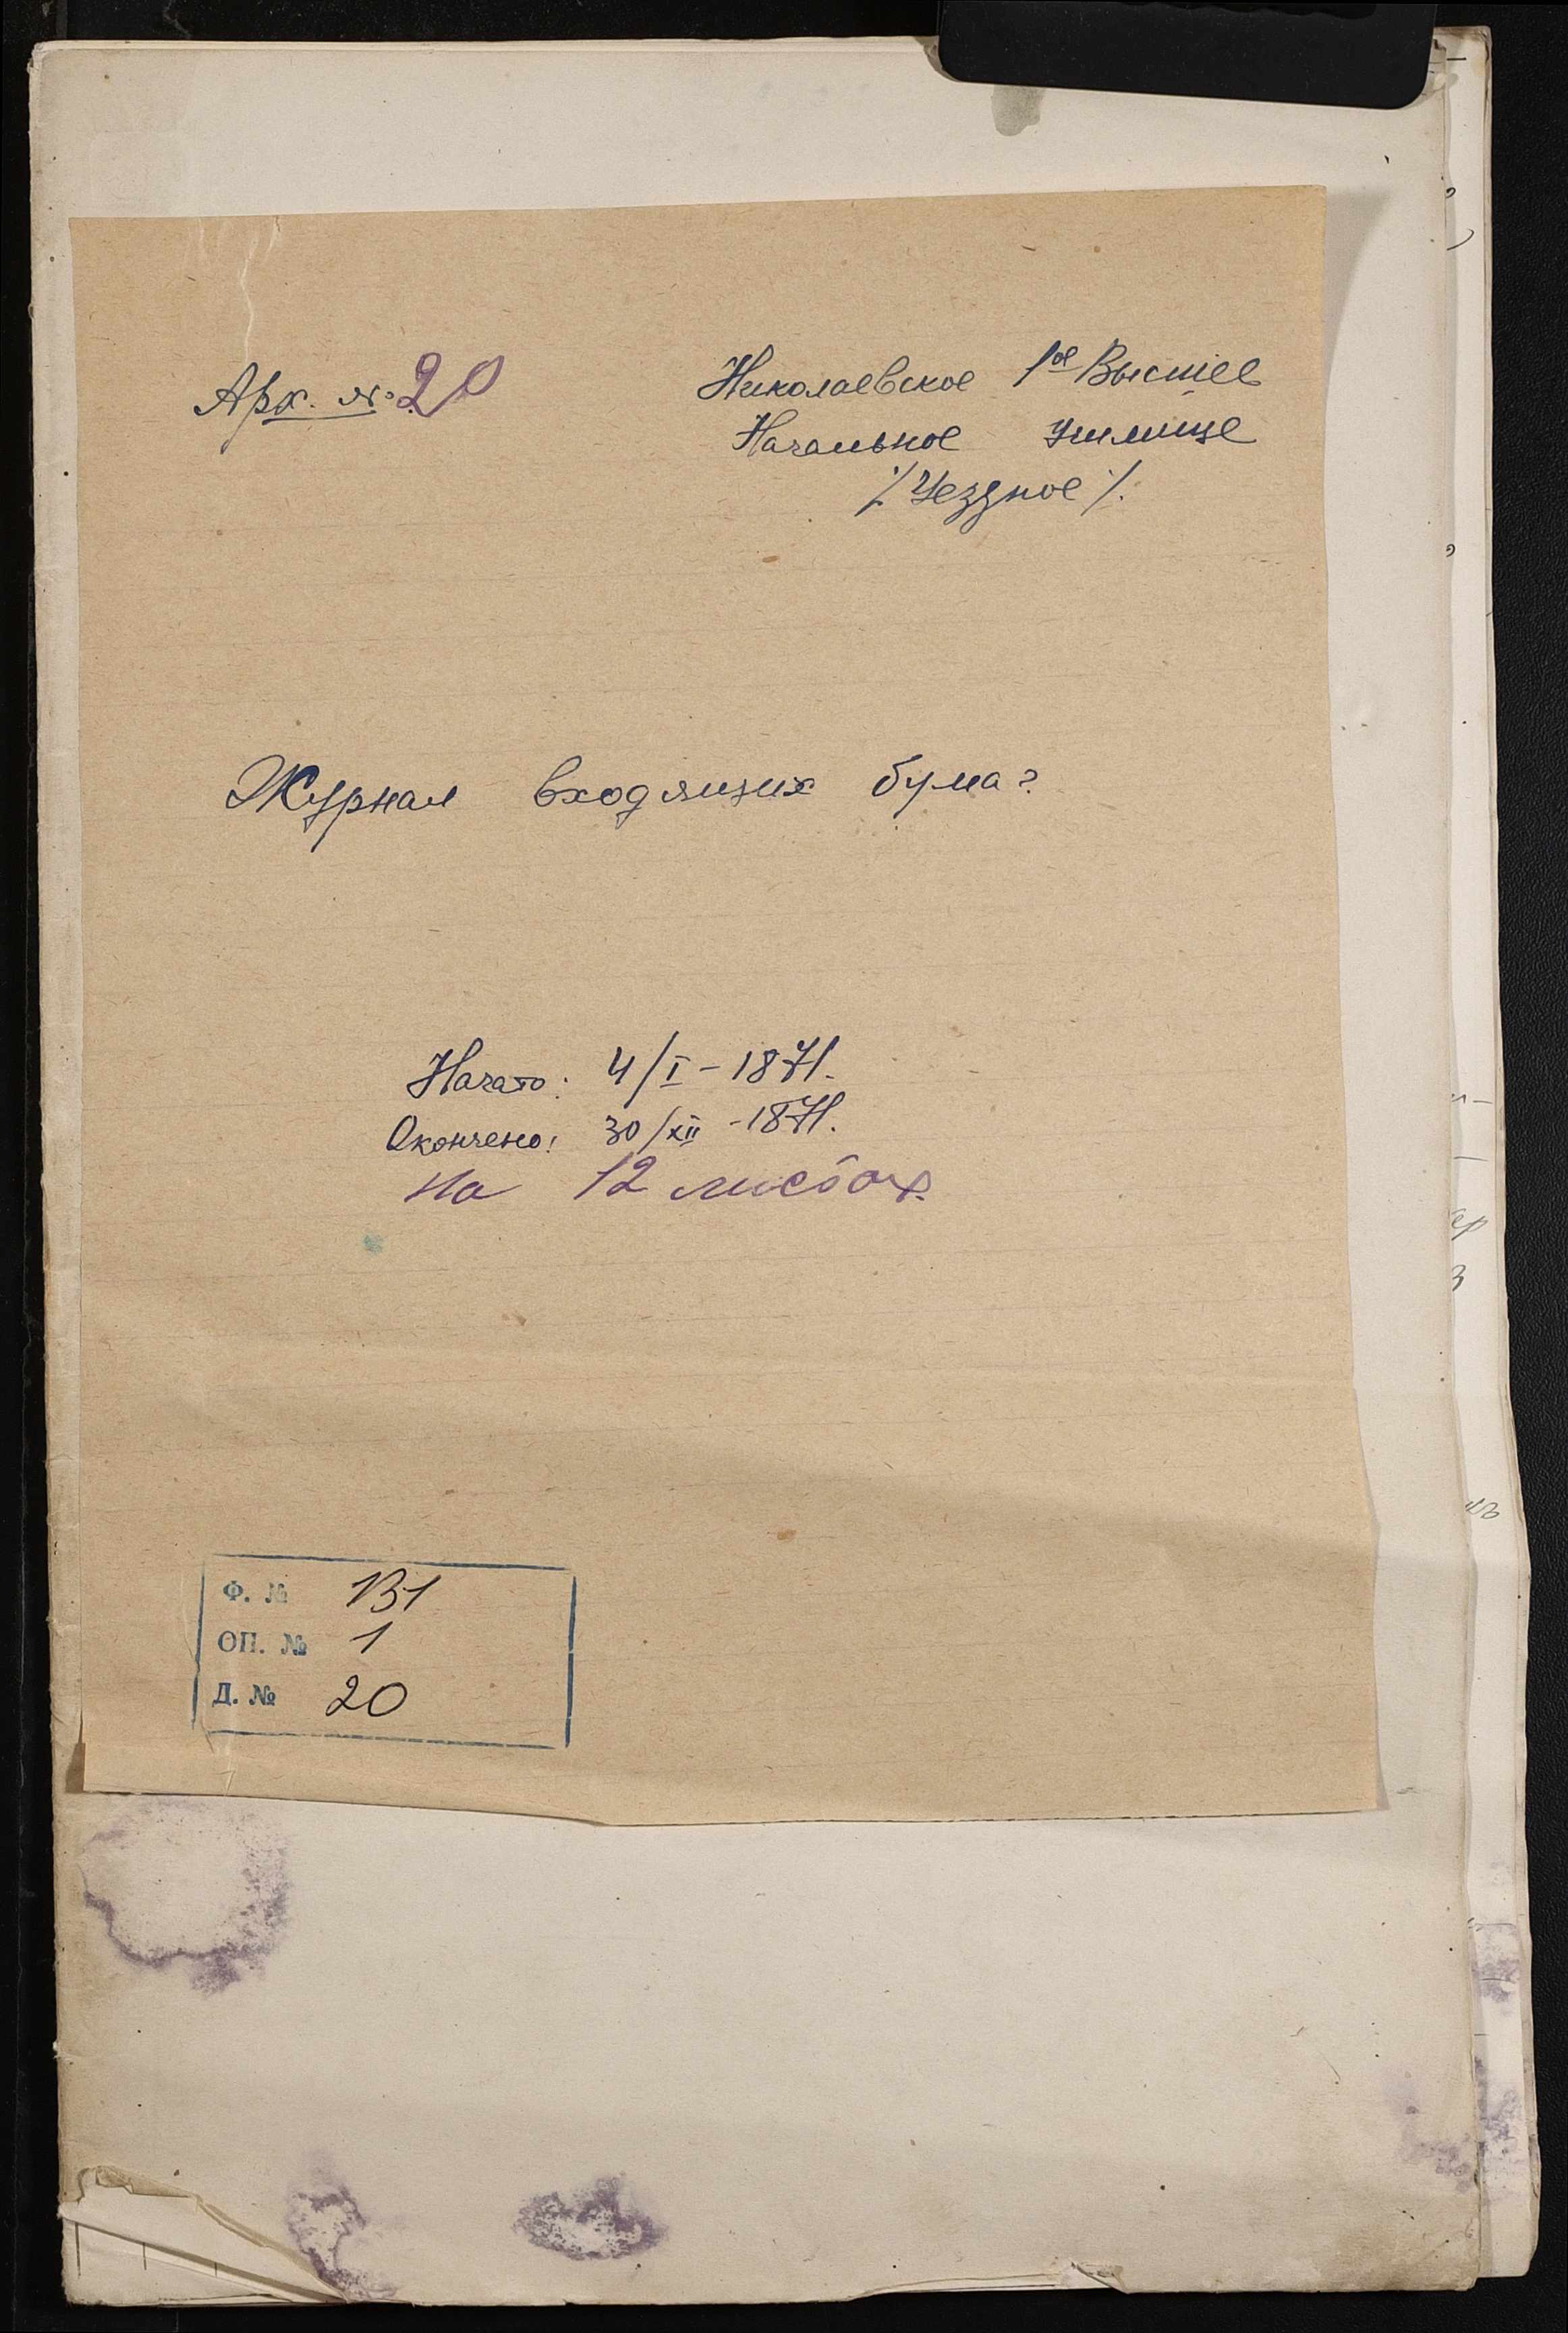 Арх. № 20
Николаевское 1ое Высшее
Начальное училище
/Уездное/.
Журнал входящих бумаг
Начато: 4/I – 1871.
Окончено: 30/XII - 1871.
на 12 листах.
Ф. № 131
ОП. № 1
Д. № 20